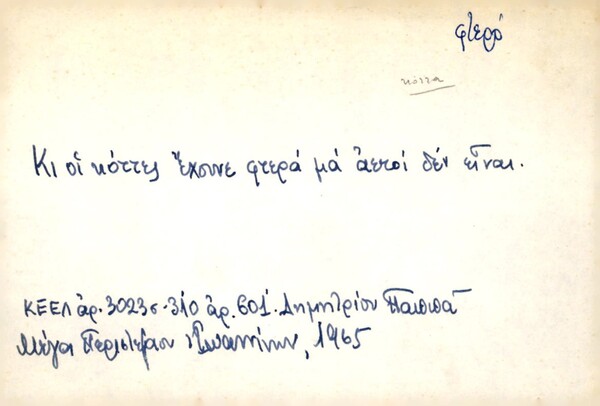 φτερό
κόττα
Κι οἱ κόττες ἔχουνε φτερά μά ἀετοί δέν εἶναι.
ΚΕΕΛ ἀρ. 3023 σ. 310 ἀρ. 601. Δημητρίου Παππᾶ
Μέγα Περιστέρι Ἰωαννίνων, 1965